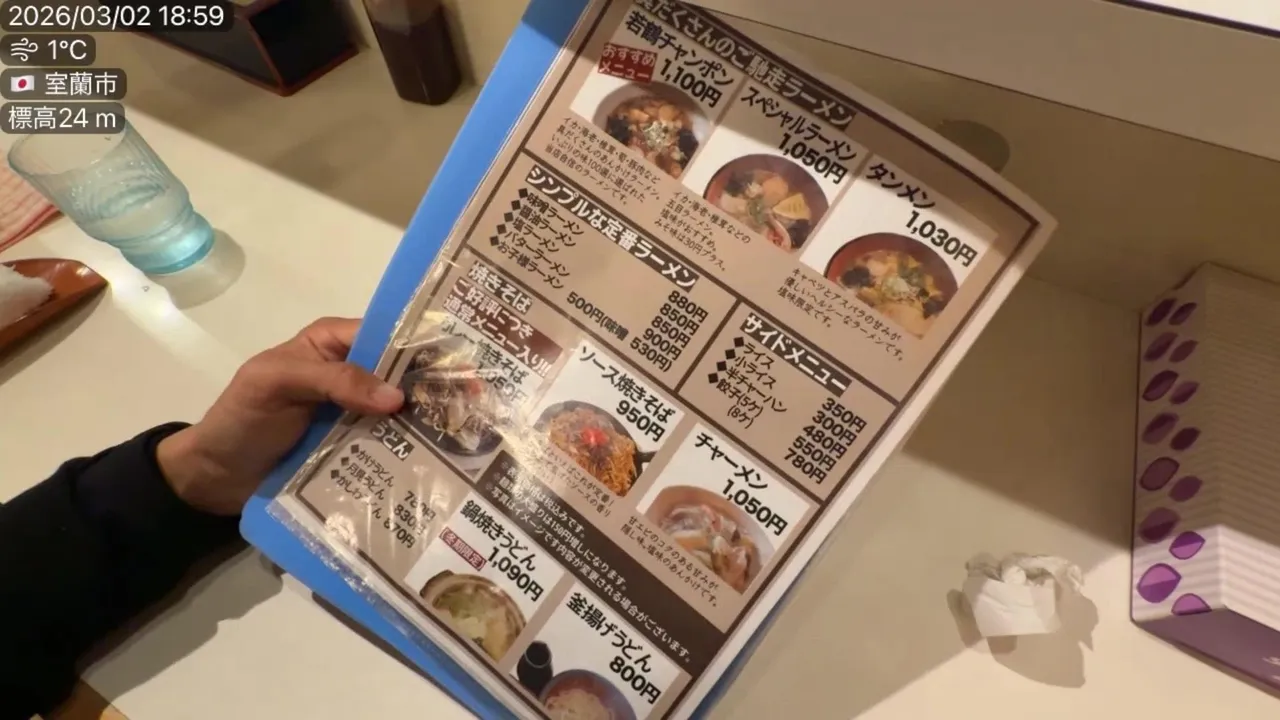 2026/03/02 18:59
1°C
室蘭市
標高24 m
具だくさんのご馳走ラーメン
若鶴チャンポン
おすすめ
メニュー
1,100円
イカ・海老・椎茸・筍・豚肉など
具だくさんのあんかけラーメン。
いぶりの味100選に選ばれた
当店自慢のラーメンです。
スペシャルラーメン
1,050円
イカ・海老・椎茸などの
五目ラーメン。
塩味がおすすめ。
みそ味は30円プラス。
タンメン
1,030円
キャベツとアスパラの甘みが
優しいヘルシーなラーメンです。
塩味限定です。
シンプルな定番ラーメン
◆味噌ラーメン 880円
◆醤油ラーメン 850円
◆塩ラーメン 850円
◆バターラーメン 900円
◆お子様ラーメン 500円(味噌 530円)
サイドメニュー
◆ライス 350円
◆小ライス 300円
◆半チャーハン 480円
◆餃子(5ケ) 550円
(8ケ) 780円
焼きそば
ご好評につき
通常メニュー入り!!
焼きそば
ソース焼きそば
950円
チャーメン
1,050円
甘エビのコクのある甘みが
隠し味。塩味のあんかけです。
うどん
◆かけうどん
◆月見うどん 830円
◆かしわうどん 870円
鍋焼きうどん
(冬期限定)
1,090円
釜揚げうどん
800円
は税込みです。
大盛りは150円増しになります。
※写真はイメージです内容が変更される場合がございます。